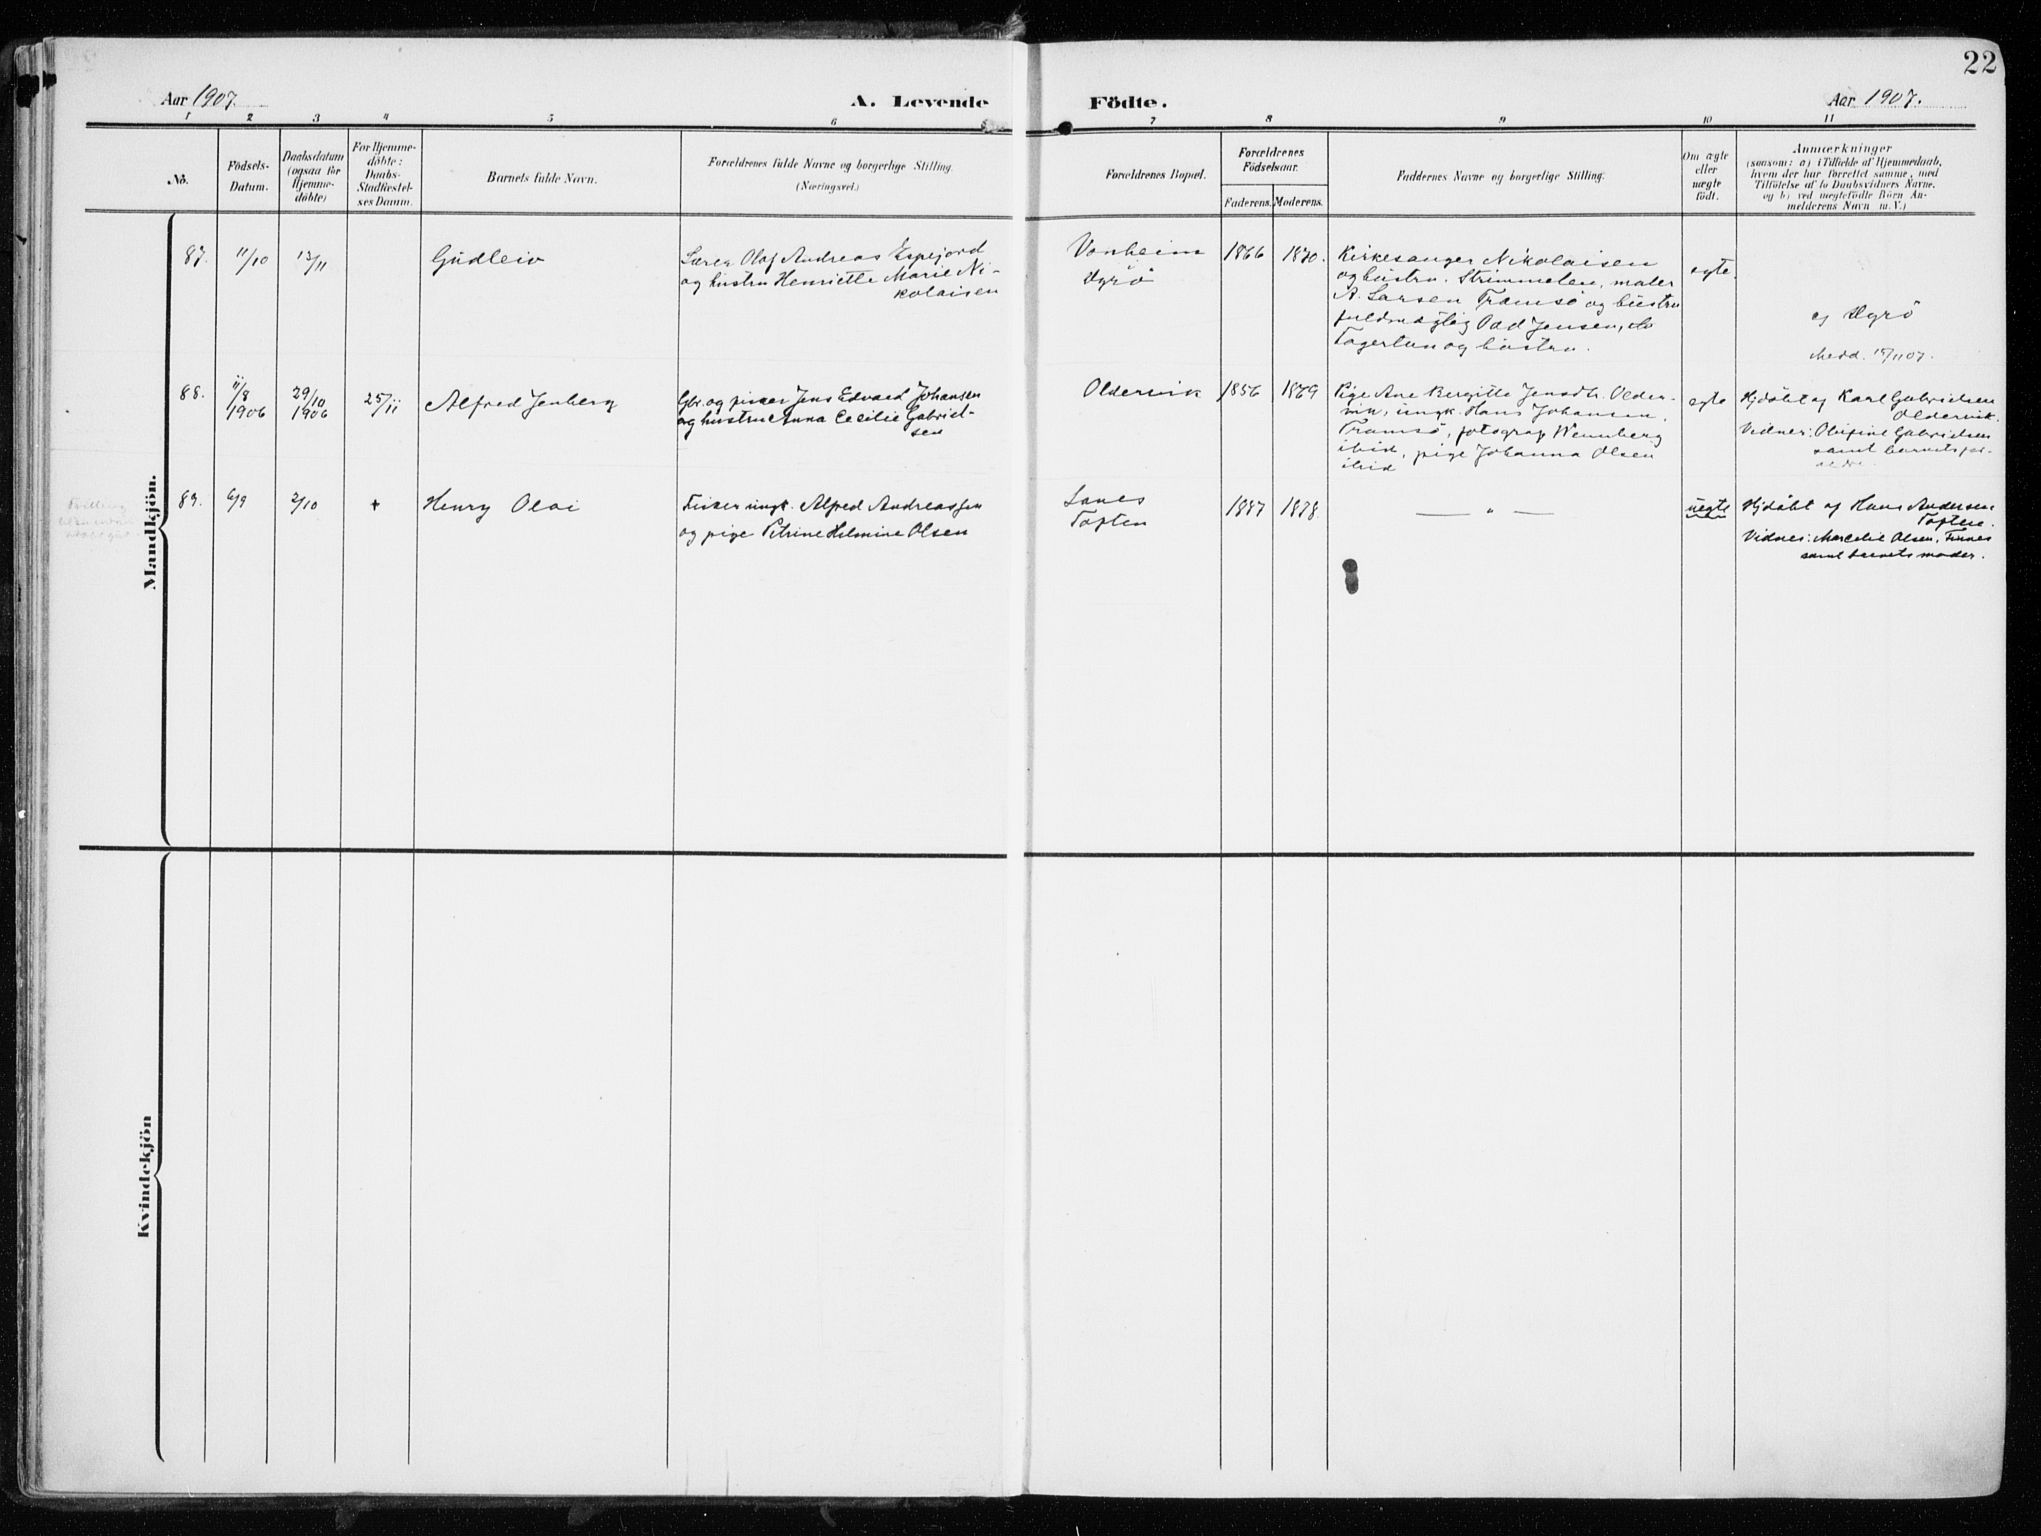 22
Aar 1907.
A. Levende Födte.
Aar 1907.
1 2 3 4 5 6 7 8 9 10 11
No.
Födsels-
Datum.
Daabsdatum
(ogsaa for
Hjemme-
döbte)
For Hjemme-
döbte:
Daabs-
Stadfæstel-
ses Datum.
Barnets fulde Navn.
Forældrenes fulde Navne og borgerlige Stilling.
(Næringsvei.)
Forældrenes Bopæl.
Forældrenes
Födselsaar.
Faderens. Moderens.
Faddernes Navne og borgerlige Stilling.
Om ægte
eller
uægte
födt.
Anmærkninger
(saasom: a) i Tilfælde af Hjemmedaab,
hvem der har forrettet samme, med
Tilföielse af to Daabsvidners Navne,
og b) ved uægtefödte Börn An-
melderens Navn m. V.)
Mandkjön.
87. 11/10 13/11 Gudleiv
Lærer Olaf Andreas Espejord
og hustru Henriette Marie Ni-
kolaisen
Vonheim
1866 1870.
Kirkesanger Nikolaisen
og hustru. Strimmelen, maler
A. Larsen Tromsö og hustru
fuldmægtig Odd Jensen, do
Fagertun og hustru.
egte.
Medd. 15/11 07.
88. 11/8
1906
29/10
1906
25/11
Alfred Jenberg
Gbr. og fisker Jens Edvard Johansen
og hustru Anna Cecilie Gabriel-
sen
Oldervik
1856 1869
Pige Ane Bergitte Jensdtr. Older-
vik, ungk. Hans Johansen,
Tromsö, fotograf Wennberg
ibid, pige Johanna Olsen
ibid
egte
Hjdöbt af Karl Gabrielsen
Oldervik.
Vidner: Olufine Gabrielsen
samt barnets for-
ældre.
89. 6/9 2/10 +
Henry Olai
Fisker ungk. Alfred Andreassen
og pige Petrine Helmine Olsen
Toften
1887 1878.
— " —
uegte
Hjdöbt af Hans Andersen
Toften.
Vidner: Marcelie Olsen,
samt barnets moder.
Kvindekjön